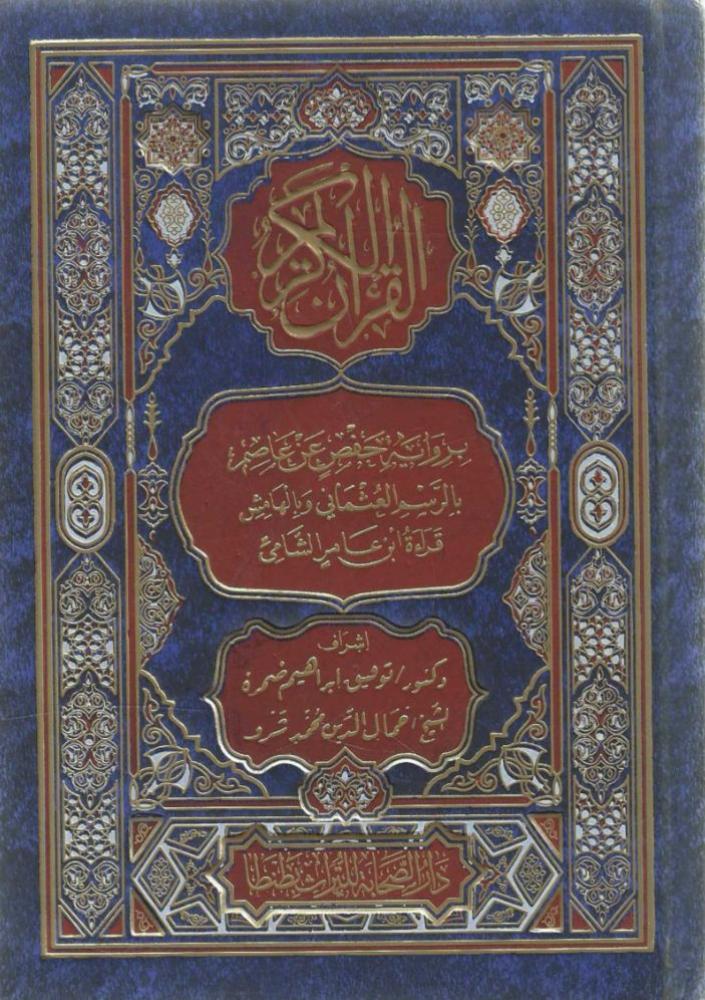 القرآن الكريم
برواية حفص عن عاصم
بالرسم العثماني وبالهامش
قراءة ابن عامر الشامي
إشراف
دكتور/ توفيق إبراهيم ضمرة
الشيخ/ جمال الدين محمد شرف
دار الصحابة للتراث بطنطا